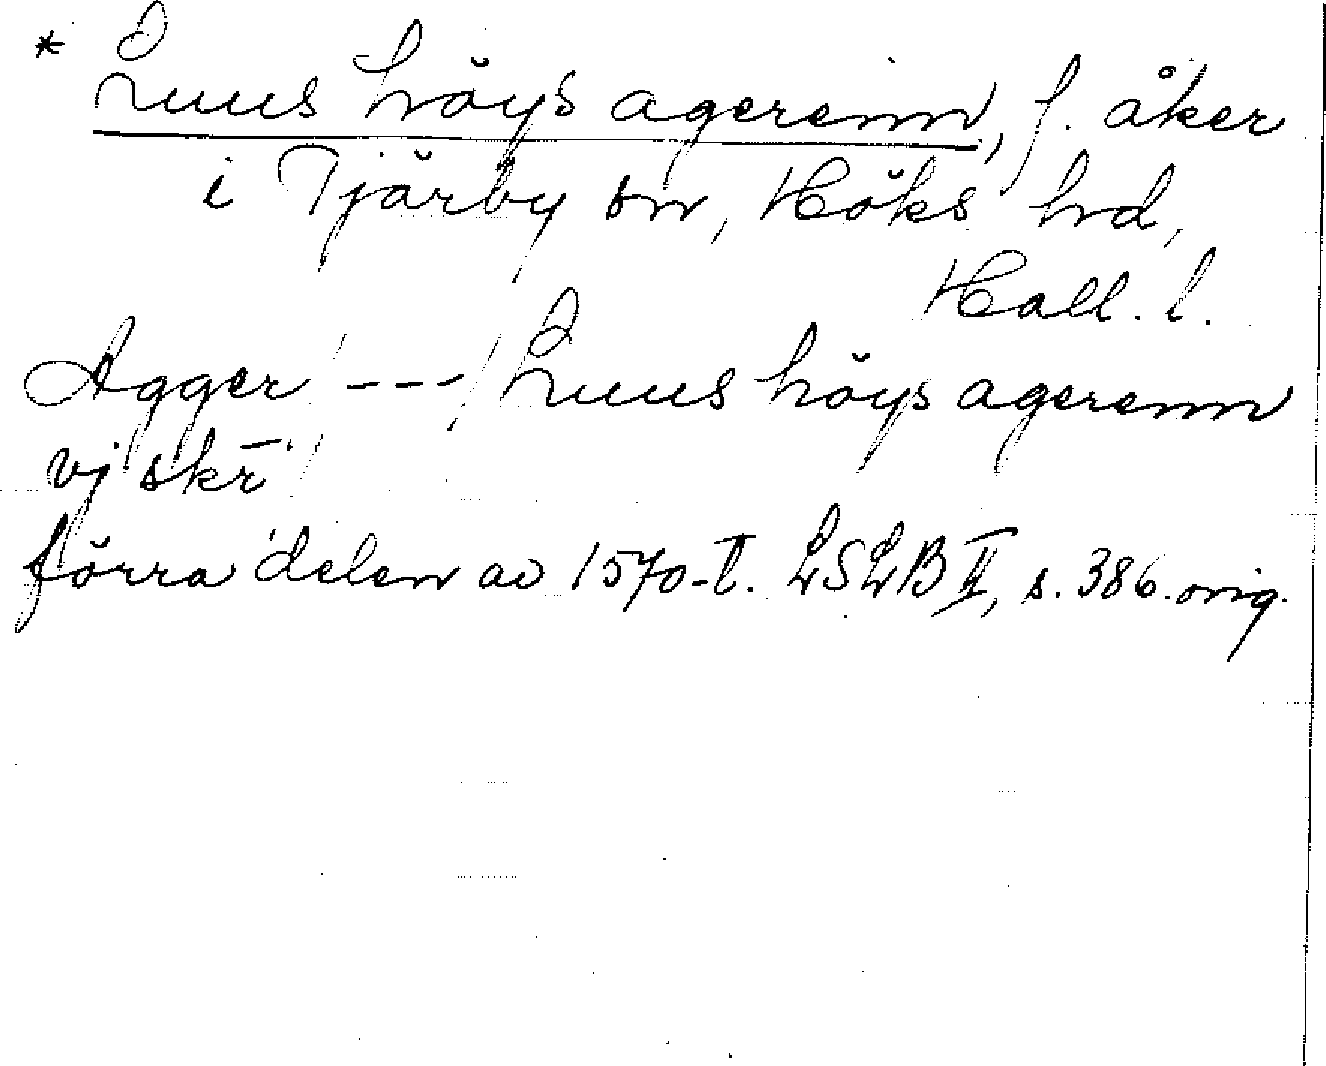 * Luus höys agerenn, f. åker
i Tjärby sn, Höks hd,
Hall. l.
Agger / --- / Luus höys agerenn
vj skr̄ /
förra delen av 1570-t. LSLB II, s. 386. orig.